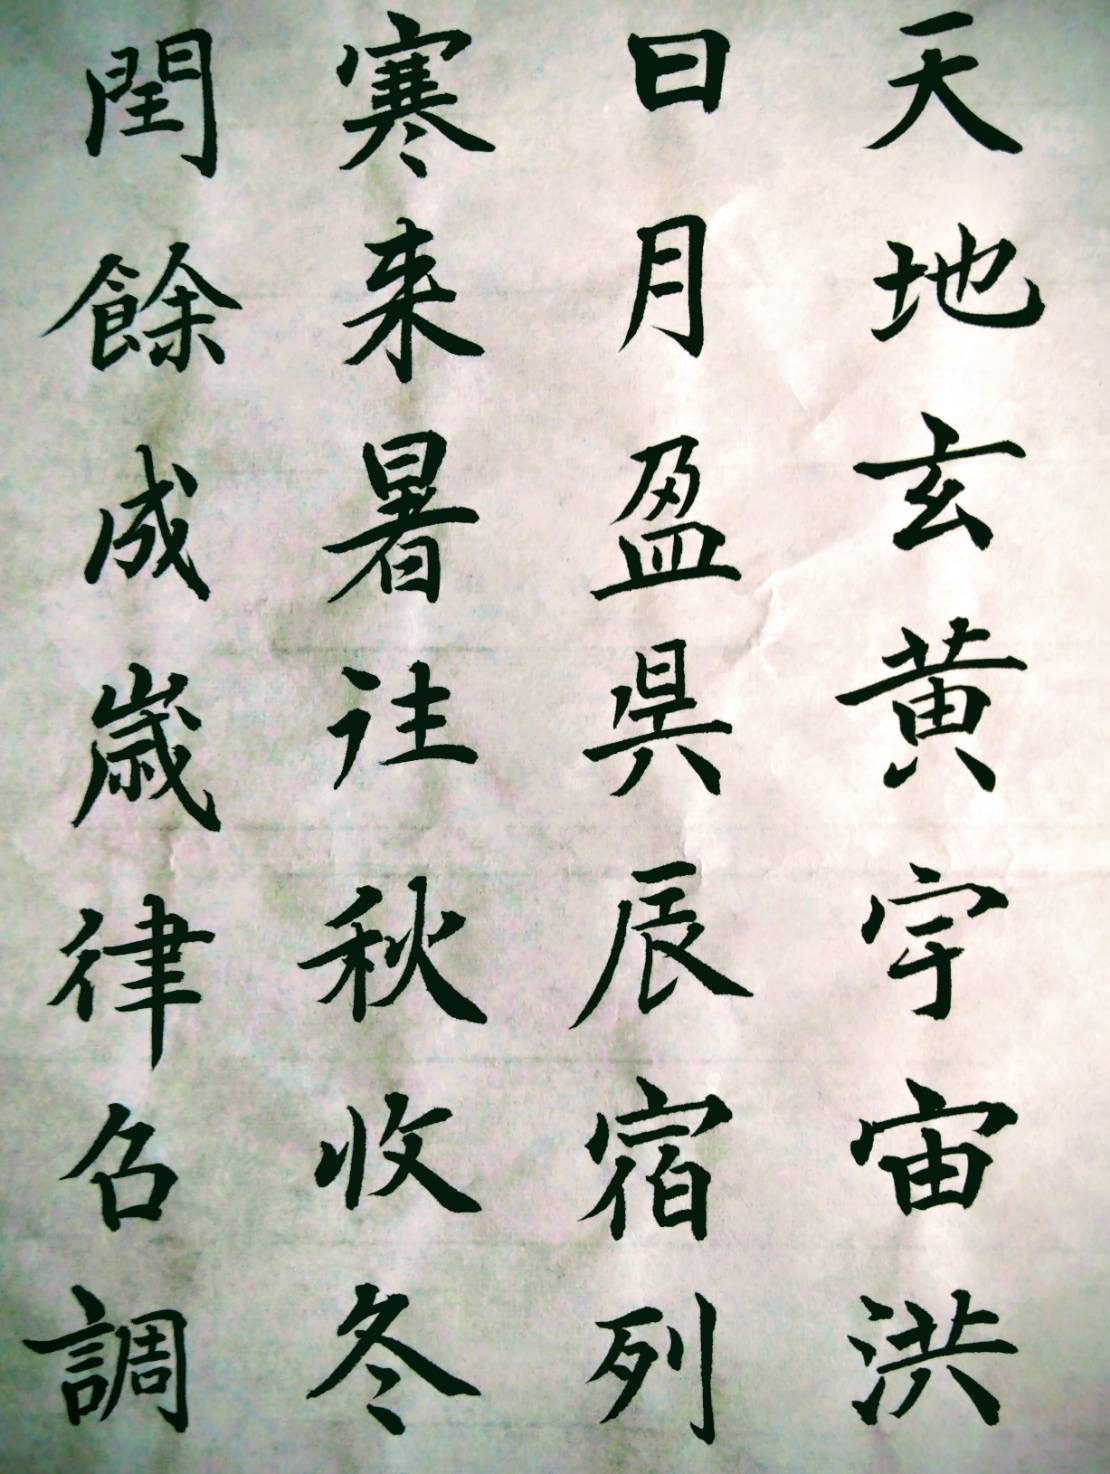 天地玄黄宇宙洪
日月盈昃辰宿列
寒来暑往秋收冬
閏餘成歲律召調